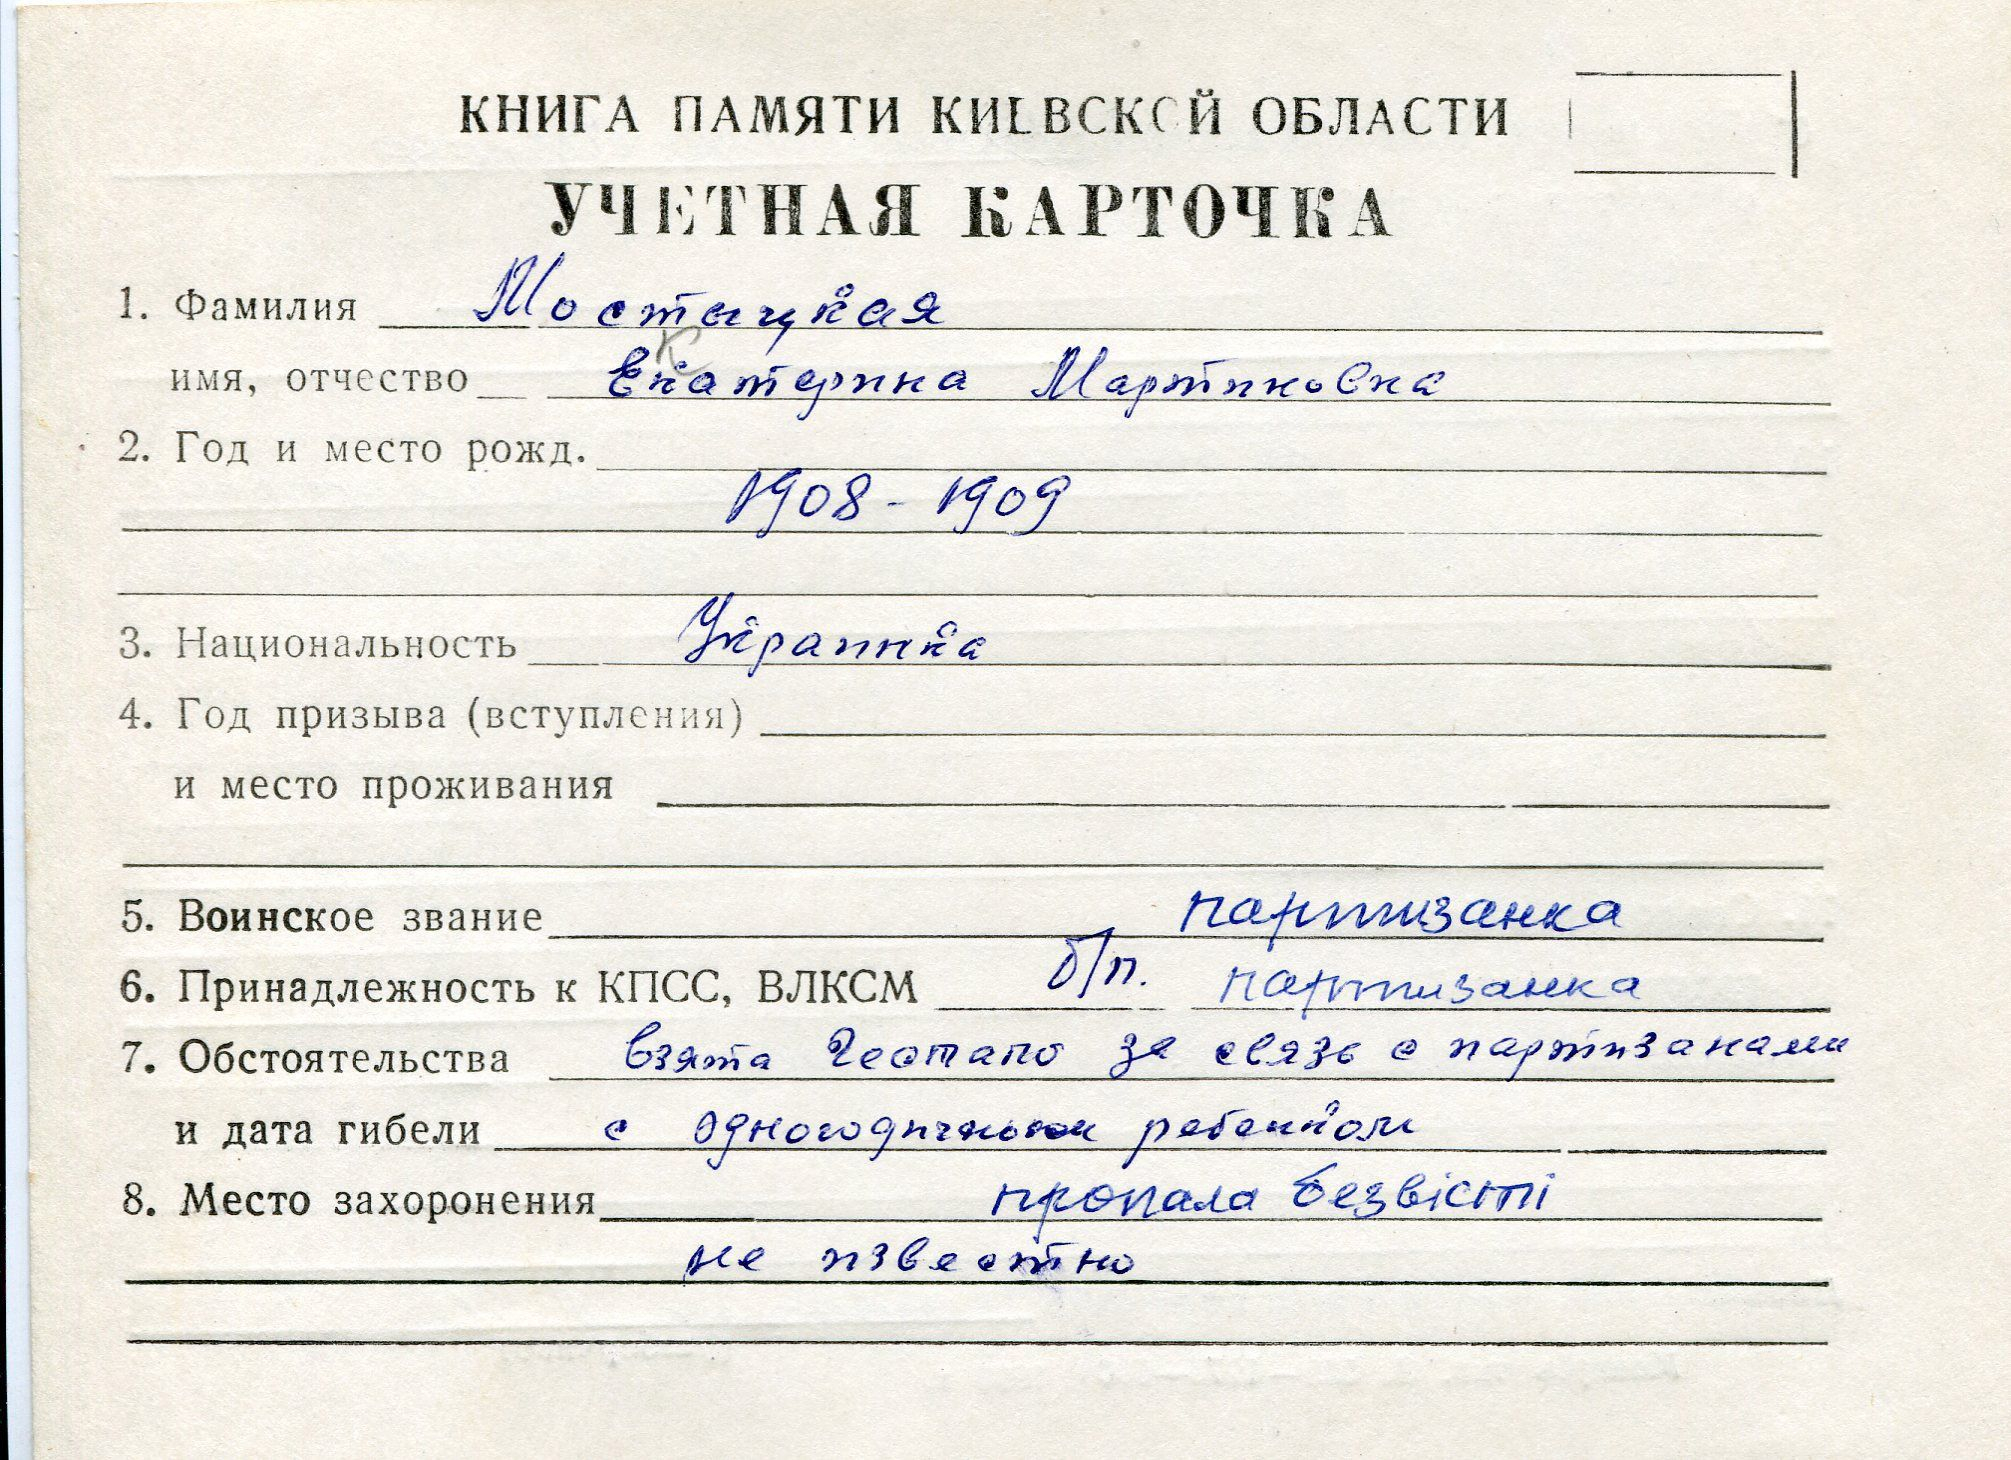 КНИГА ПАМЯТИ КИЕВСКОЙ ОБЛАСТИ
УЧЕТНАЯ КАРТОЧКА
1. Фамилия Мостыцкая
имя, отчество Екатерина Мартиновна
2. Год и место рожд.
1908 - 1909
3. Национальность Украинка
4. Год призыва (вступления)
и место проживания
5. Воинское звание партизанка
6. Принадлежность к КПСС, ВЛКСМ б/п. партизанка
7. Обстоятельства взята Гестапо за связь с партизанами
и дата гибели с одногодичным ребенком
8. Место захоронения пропала безвісті
не известно